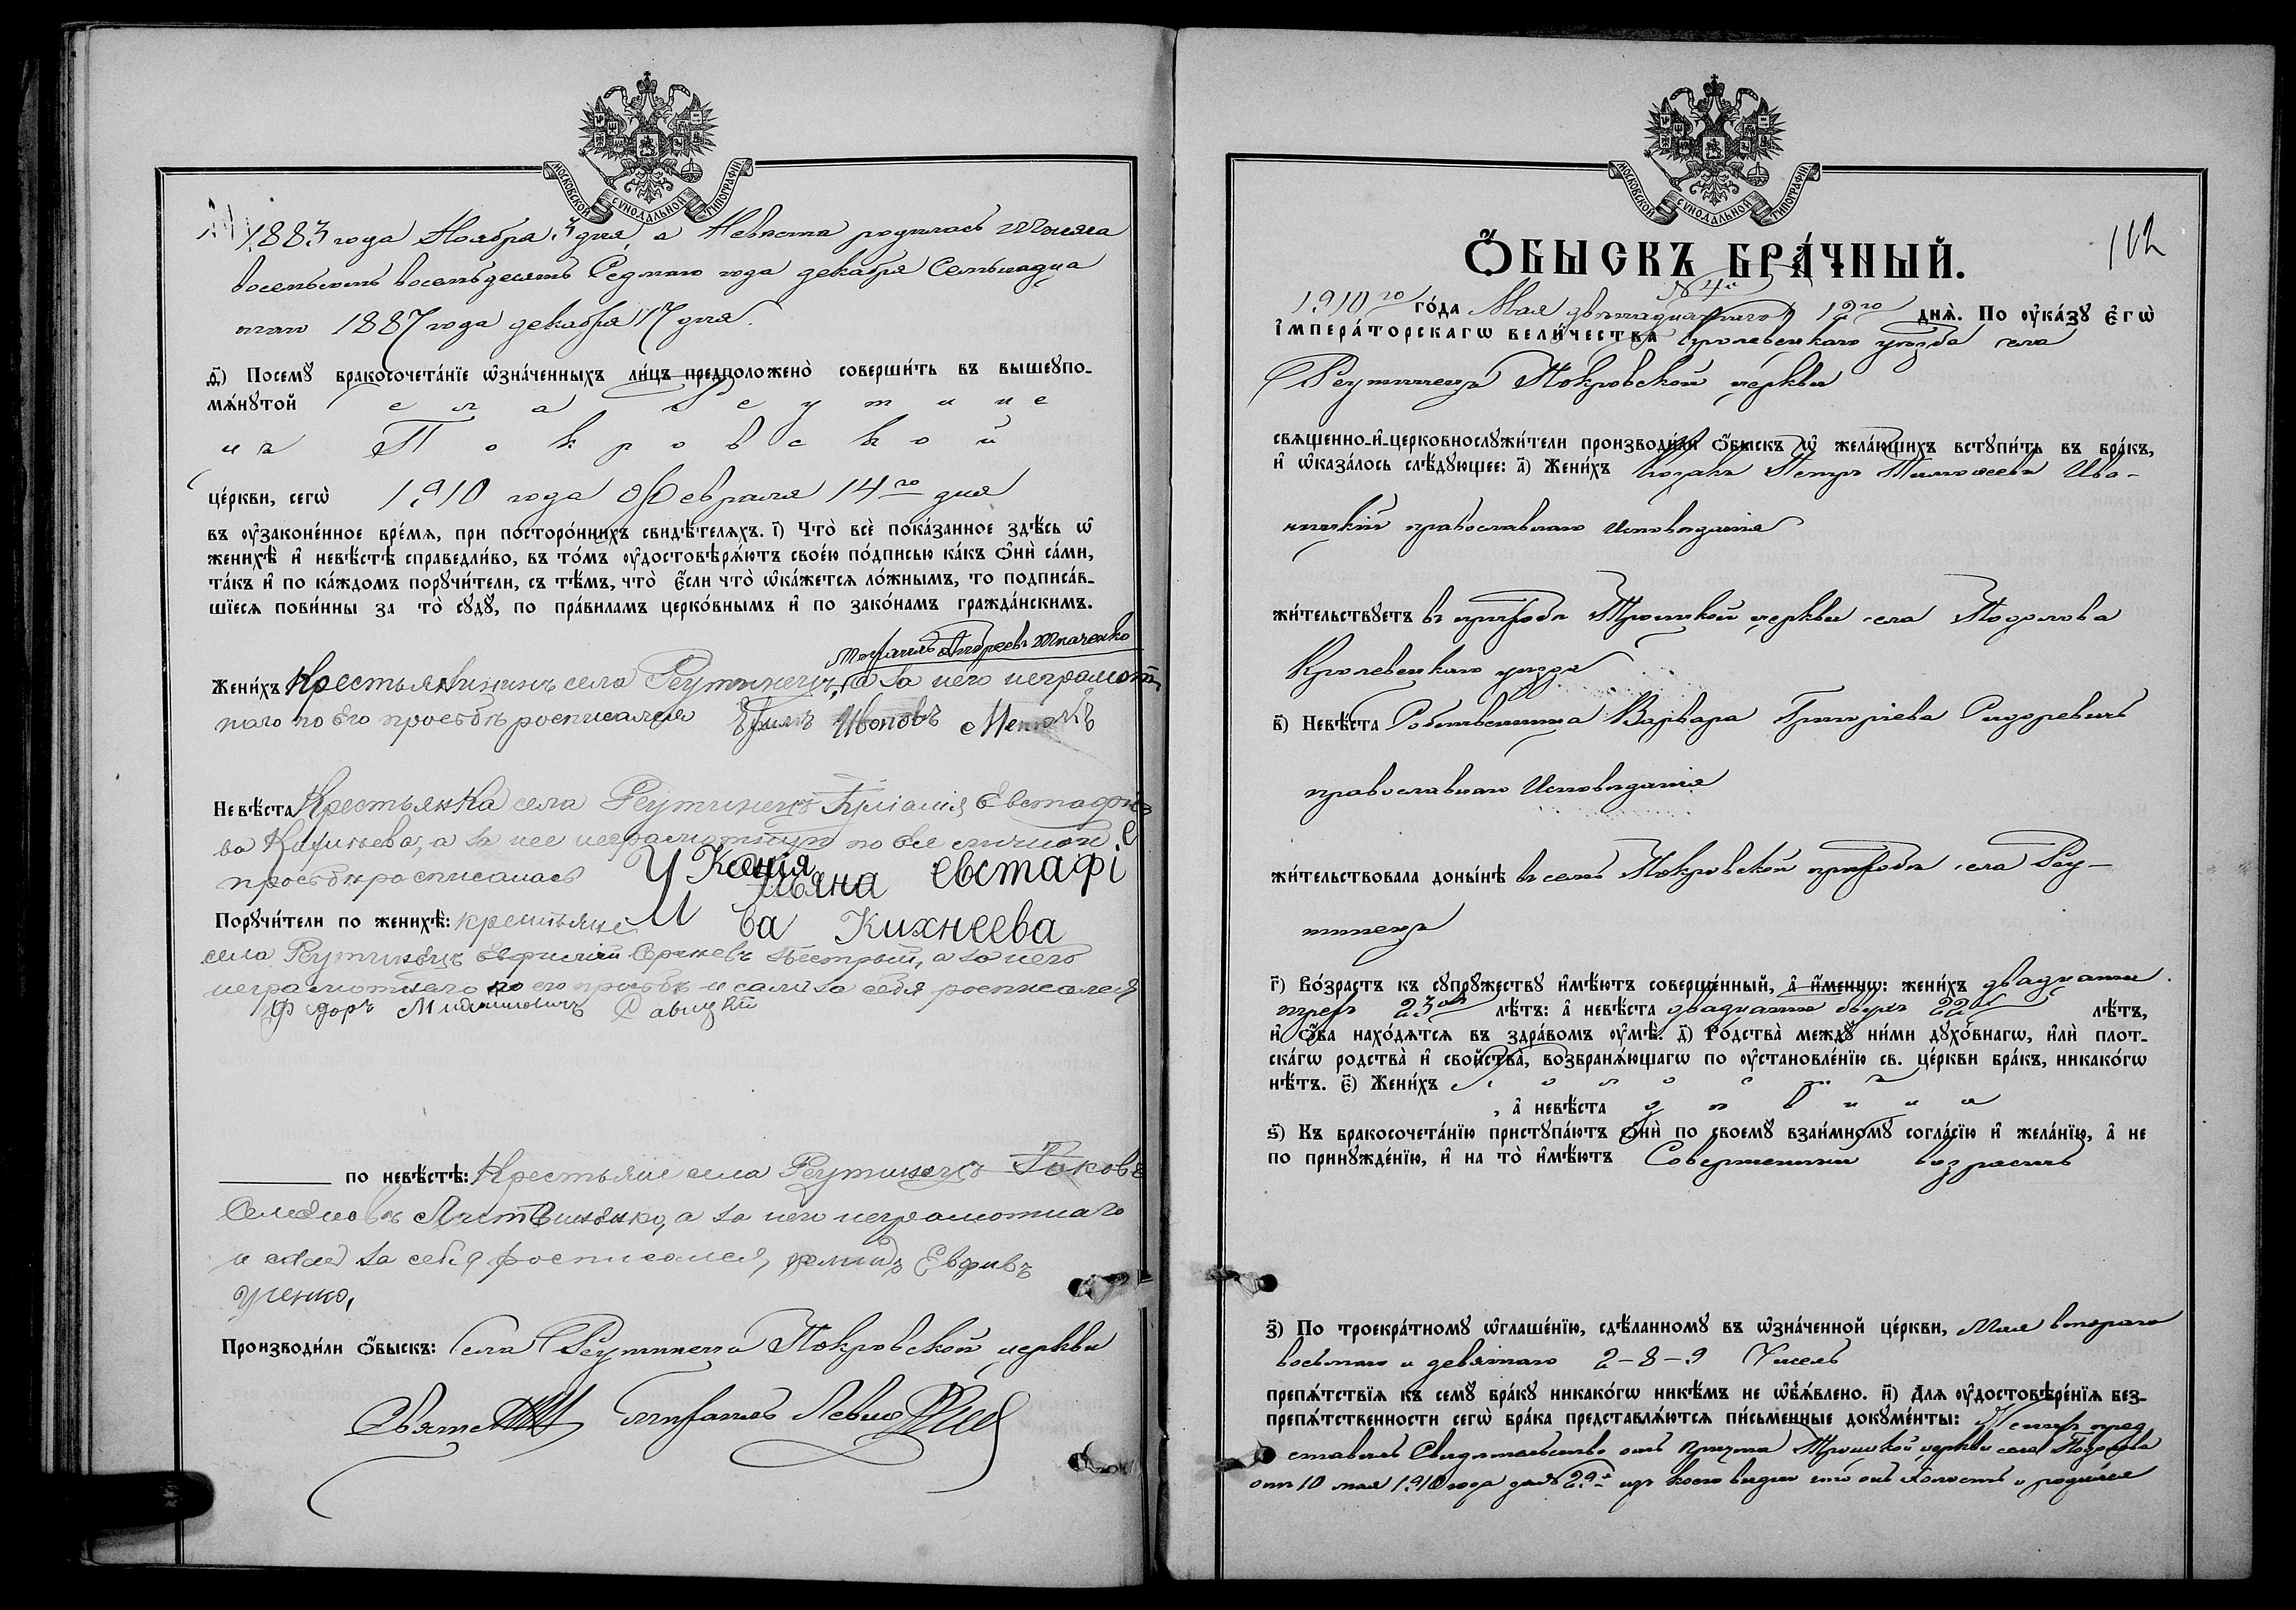 МОСКОВСКОЙ СУНОДАЛЬНОЙ ТИПОГРАФІИ
1883 года Ноября 3 дня, а Невѣста родилась тысяча
восемьсотъ восемьдесятъ Седмаго года декабря Семьнадца
таго 1887 года декабря 17 дня.
ѳ) Посемꙋ бракосочета́нїе ѡзна́ченныхъ ли́цъ предположено̀ соверши́ть въ вышеꙋпо-
мѧ́нꙋтой села Реутине
ца Покровской
це́ркви, сегѡ̀ 1910 года Февраля 14го дня
въ оу҆законе́нное вре́мѧ, при посторо́ннихъ свидѣ́телѧхъ. і҃) Что̀ всѐ пока́занное здѣ́сь ѡ҆
женихѣ̀ и҆ невѣ́стѣ справедли́во, въ то́мъ оу҆достовѣрѧ́ютъ свое́ю по́дписью ка́къ ѻ҆нѝ са́ми,
та́къ и҆ по ка́ждомъ порꙋчи́тели, съ тѣ́мъ, что̀ є҆́сли что̀ ѡ҆ка́жетсѧ ло́жнымъ, то подписа́в-
шїесѧ пови́нны за то̀ сꙋдꙋ̀, по пра́виламъ церко́внымъ и҆ по зако́намъ гражда́нскимъ.
Андреевъ Ткаченко
Жени́хъ Крестьянинъ села Реутинецъ, а за него неграмот
наго по его просьбѣ росписался Ивановъ
Невѣ́ста Крестьянка села Реутинецъ Евстафіе
ва Кихнеева, а за нее неграмотную по ее личной
просьбѣ росписалась Ксенія
Ульяна Евстафі
ева Кихнеева
Порꙋчи́тели по женихѣ̀: крестьяне
села Реутинецъ Пестрый, а за него
неграмотнаго по его просьбѣ и самъ за себя росписался
Федоръ Михайловичъ Савицкій
по невѣ́стѣ: Крестьяне села Реутинецъ Яковъ
Литвиненко, а за него неграмотнаго
и самъ за себя росписался,
Производи́ли ѻ҆́быскъ: Села Реутинецъ Покровской церкви
Михаилъ
МОСКОВСКОЙ СУНОДАЛЬНОЙ ТИПОГРАФІИ
Ѻ҆́БЫСКЪ БРА́ЧНЫЙ.
112
№ 4й
1910го го́да Мая двѣнадцатаго 12го днѧ̀. По оу҆ка́зꙋ Є҆гѡ̀
І҆мпера́торскагѡ вели́чества Кролевецкаго уѣзда села
Реутинецъ Покровской церкви
свѧщенно-и҆-церковнослꙋжи́тели производи́ли ѻ҆́быскъ ѡ҆ жела́ющихъ вступи́ть въ бра́къ,
и҆ ѡ҆каза́лось слѣ́дꙋющее: а҃) Жени́хъ Козакъ Петръ Тимоѳеевъ Ива-
ницкій православнаго Исповѣданія
жи́тельствꙋетъ въ приходѣ Троицкой церкви села Подолова
Кролевецкаго уѣзда
в҃) Невѣ́ста Собственница Варвара Григоріева Сидоревичъ
православнаго Исповѣданія
жи́тельствовала доны́нѣ въ семъ Покровской приходѣ села Реу-
тинецъ
г҃) Во́зрастъ къ сꙋпрꙋ́жествꙋ и҆мѣ́ютъ соверше́нный, а҆ и҆́меннѡ: жени́хъ двадцати
трехъ 23хъ лѣ́тъ: а҆ невѣ́ста двадцати двухъ 22хъ лѣ́тъ,
и҆ ѻ҆́ба нахо́дѧтсѧ въ здра́вомъ оу҆мѣ̀. д҃) Ро́дства̀ междꙋ̀ ни́ми дꙋхо́внагѡ, и҆лѝ плот-
ска́гѡ родства̀ и҆ сво́йства̀, возбранѧ́ющагѡ по оу҆становле́нїю св. це́ркви бра́къ, никако́гѡ
нѣ́тъ. є҃) Жени́хъ холостъ
, а҆ невѣ́ста дѣвица
ѕ҃) Къ бракосочета́нїю пристꙋпа́ютъ ѻ҆нѝ по своемꙋ̀ взаи́мномꙋ согла́сїю и҆ жела́нїю, а҆ не
по принꙋжде́нїю, и҆ на то̀ и҆мѣ́ютъ Совершенный возрастъ
з҃) По троекра́тномꙋ ѡ҆глаше́нїю, сдѣ́ланномꙋ въ ѡ҆зна́ченной це́ркви, Мая второго
восьмаго и девятаго 2-8-9 Чиселъ
препѧ́тствїѧ къ семꙋ̀ бра́кꙋ никако́гѡ никѣ́мъ не ѡ҆б̾ѧ́влено. и҃) Длѧ оу҆достовѣре́нїѧ без-
препѧ́тственности сегѡ̀ бра́ка представлѧ́ютсѧ пи́сьменные докꙋме́нты: Женихъ пред
ставилъ Свидѣтельство отъ Причта Троицкой церкви села Подолова
отъ 10 мая 1910 года за № 29й изъ коего видно что онъ Холостъ и родился